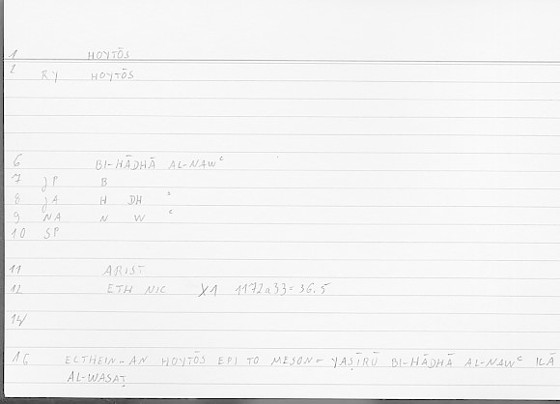 1 HOYTŌS
2 RY HOYTŌS
6 BI-HĀDHĀ AL-NAWʿ
7 jP B
8 jA H DH ʿ
9 NA N W ʿ
10 SP
11 ARIST
12 ETH NIC X1 1172a33=36.5
14/
16 ELTHEIN-AN HOYTŌS EPI TO MESON = YAṢĪRŪ BI-HĀDHĀ AL-NAWʿ ILĀ
AL-WASAṬ